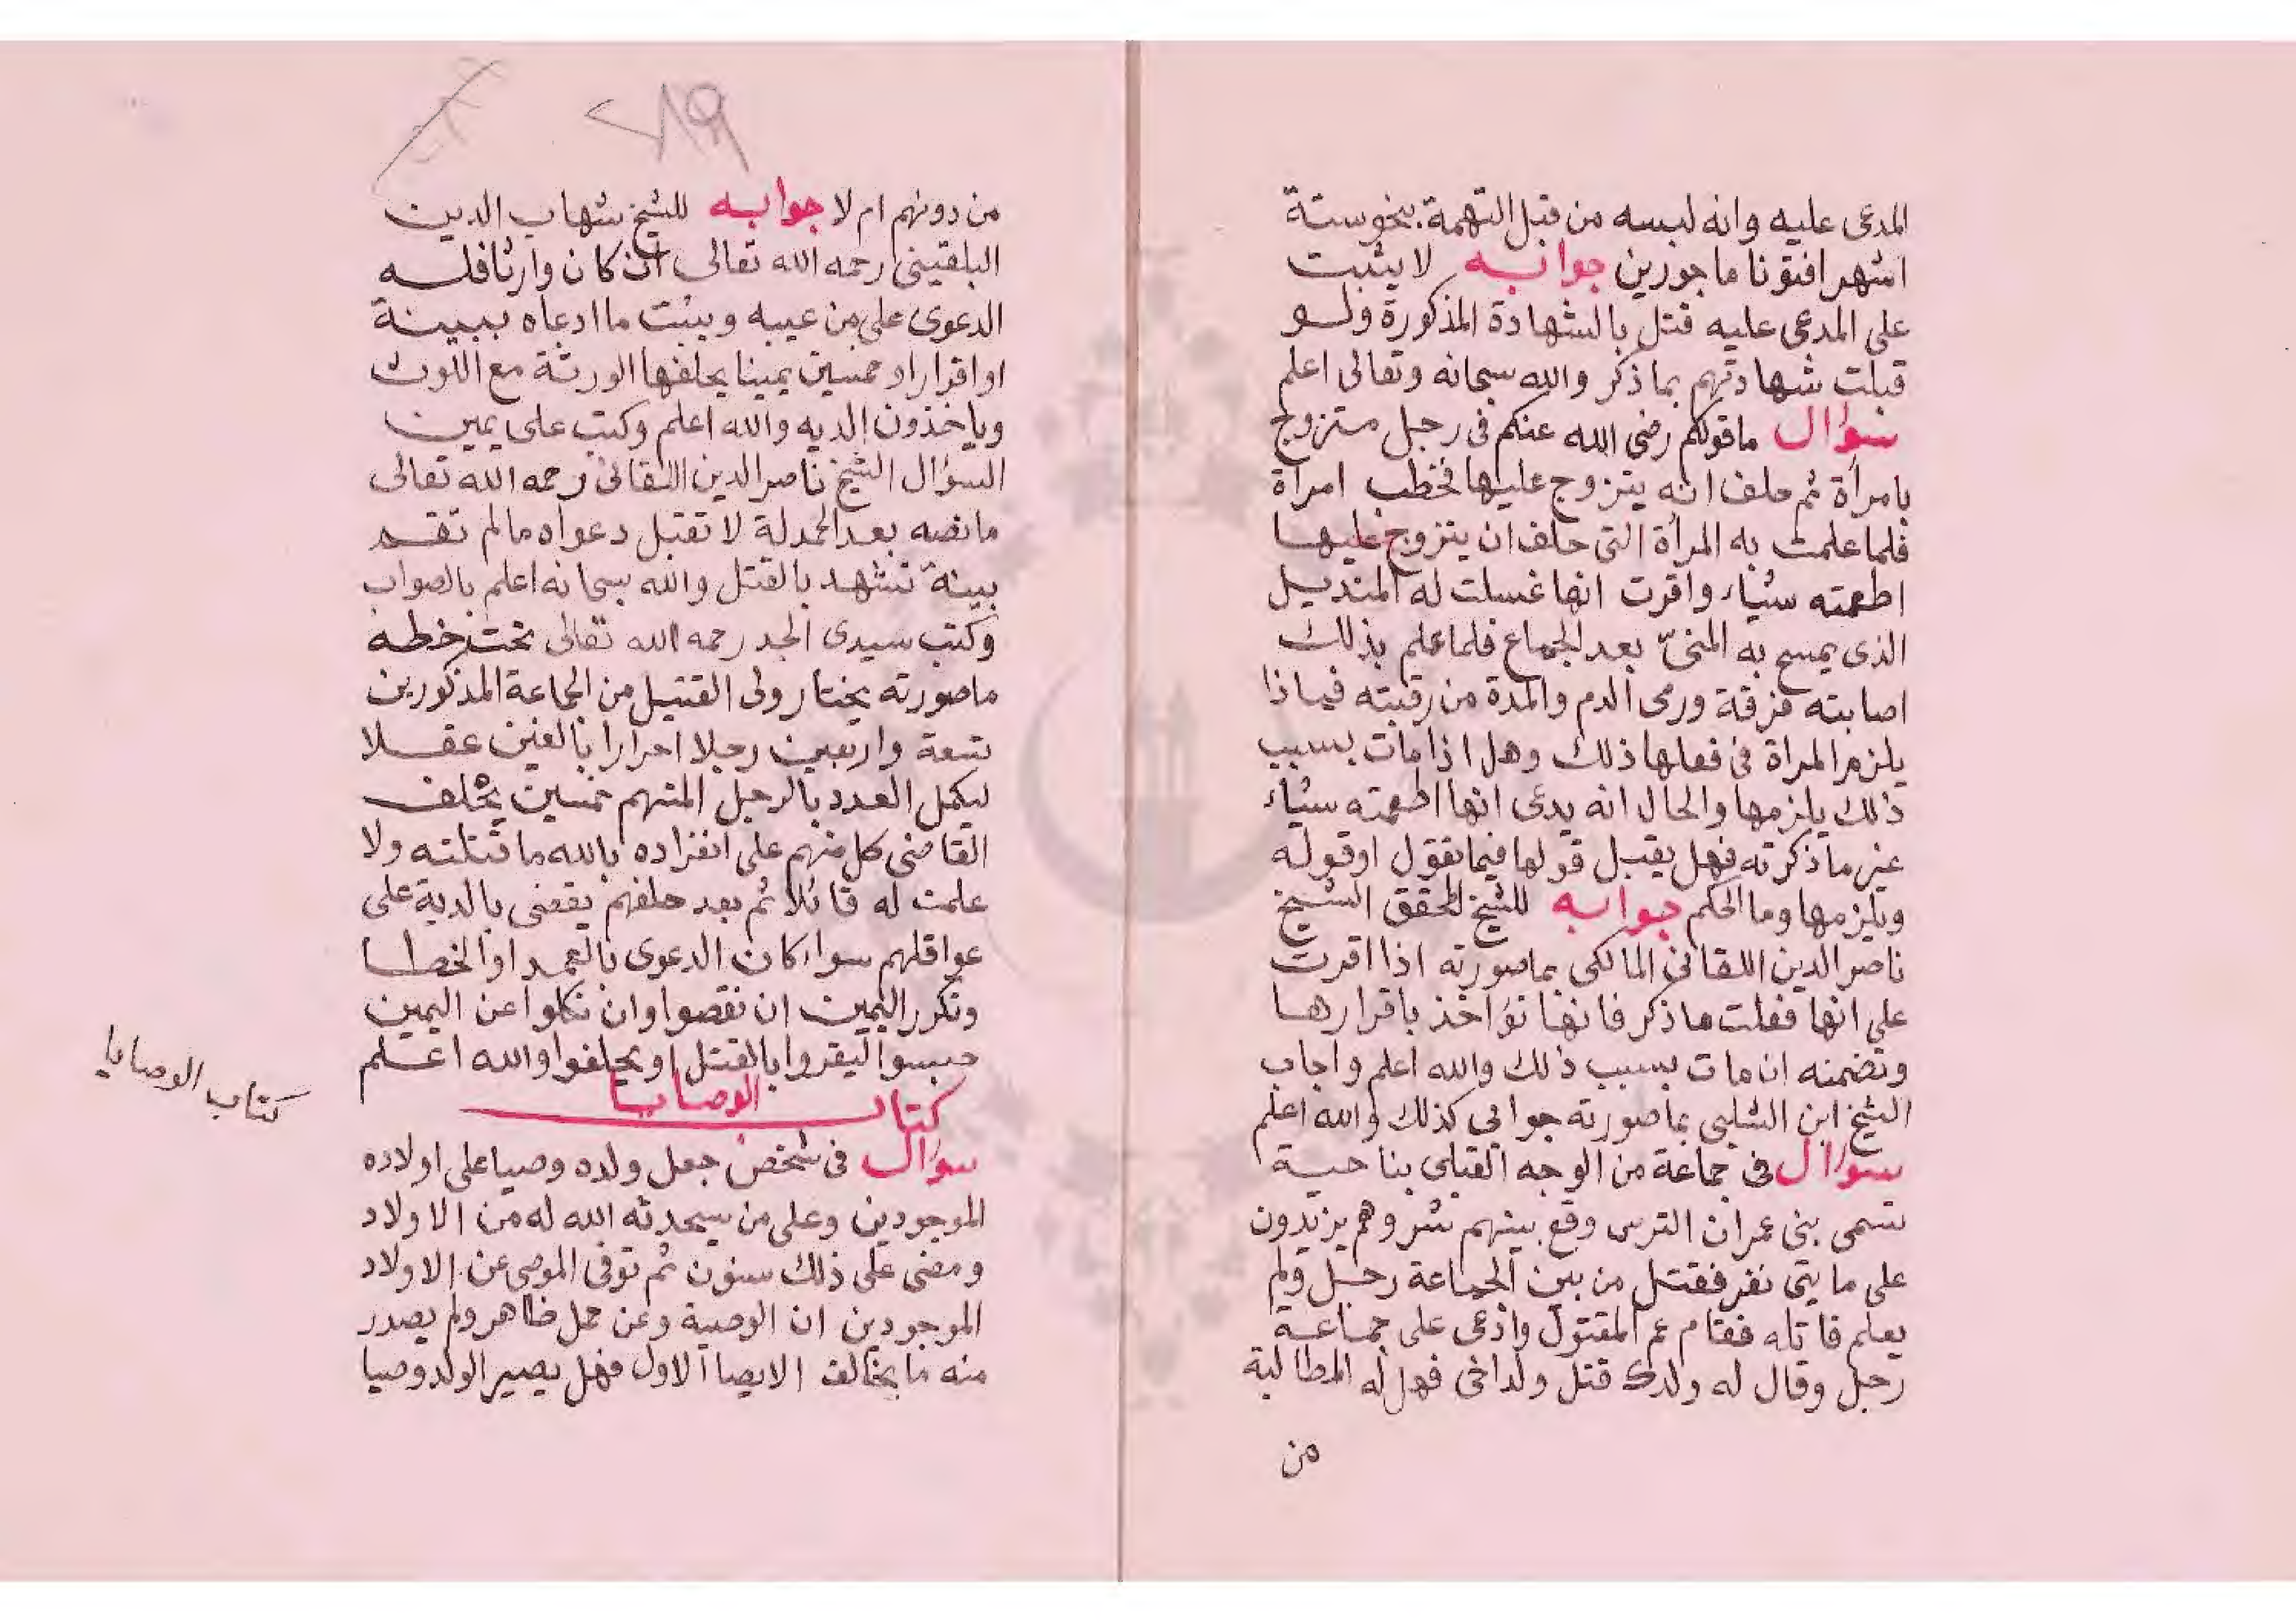 المدعى عليه وانه لبسه من قبل التهمة بنحو ستة
اشهر افتونا ماجورين جوابه لا يثبت
على المدعى عليه قتل بالشهادة المذكورة ولو
قبلت شهادتهم بما ذكر والله سبحانه وتعالى اعلم
سؤال ماقولكم رضى الله عنكم فى رجل متزوج
بامرأة ثم حلف انه يتزوج عليها فخطب امرأة
فلما علمت به المرأة التى حلف ان يتزوج عليها
اطعمته شيأ واقرت انها غسلت له المنديل
الذى يمسح به المنىّ بعد الجماع فلما علم بذلك
اصابته فزقة ورمى الدم والمدة من رقبته فماذا
يلزم المراة فى فعلها ذلك وهل اذا مات بسبب
ذلك يلزمها والحال انه يدعى انها اطعمته شيأ
غير ما ذكرته فهل يقبل قولها فيما تقول او قوله
ويلزمها وما الحكم جوابه للشيخ المحقق الشيخ
ناصر الدين اللقانى المالكى بماصورته اذا اقرت
على انها فعلت ماذكر فانها تؤاخذ باقرارها
وتضمنه ان مات بسبب ذلك والله اعلم واجاب
الشيخ ابن الشلبى بماصورته جوابى كذلك والله اعلم
سؤال فى جماعة من الوجه القبلى بناحية
تسمى بنى عمران الترس وقع بينهم شر وهم يزيدون
على مايتى نفر فقتل من بين الجماعة رجل ولم
يعلم قاتله فقام عم المقتول وادعى على جماعة
رجل وقال له ولدك قتل ولد اخى فهل له المطالبة
من
٢١٩
من دونهم ام لا جوابه للشيخ شهاب الدين
البلقينى رحمه الله تعالى ان كان وارثا فله
الدعوى على من عيبه ويثبت ما ادعاه ببينة
او اقرار او خمسين يمينا يحلفها الورثة مع اللوث
وياخذون الديه والله اعلم وكتب على يمين
السؤال الشيخ ناصر الدين اللقانى رحمه الله تعالى
مانصه بعد الحمدلة لا تقبل دعواه مالم تقم
بينة تشهد بالقتل والله سبحانه اعلم بالصواب
وكتب سيدى الجد رحمه الله تعالى تحت خطه
ماصورته يختار ولى القتيل من الجماعة المذكورين
تسعة واربعين رجلا احرارا بالغين عقلا
ليكمل العدد بالرجل المتهم خمسين يحلف
القاضى كل منهم على انفراده بالله ما قتلته ولا
علمت له قاتلا ثم بعد حلفهم يقضى بالدية على
عواقلهم سواء كان الدعوى بالعمد او الخطا
وتكرر اليمين ان نقصوا وان نكلوا عن اليمين
حبسوا ليقروا بالقتل او يحلفوا والله اعلم
كتاب الوصايا
كتاب الوصايا
سؤال فى شخص جعل ولده وصيا على اولاده
الموجودين وعلى من سيحدثه الله له من الاولاد
ومضى على ذلك سنون ثم توفى الموصى عن الاولاد
الموجودين ان الوصية وعن حمل ظاهر ولم يصدر
منه ما يخالف الايصا الاول فهل يصير الولد وصيا